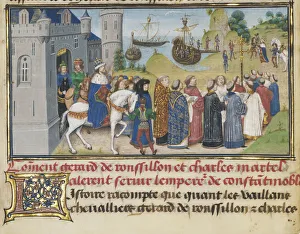 Comment gerard de roussillon et charles martel
alerent servir lempereur de constantinoble
Istoire racompte que quant les vaillans
chevalliers gerard de roussillon z charles